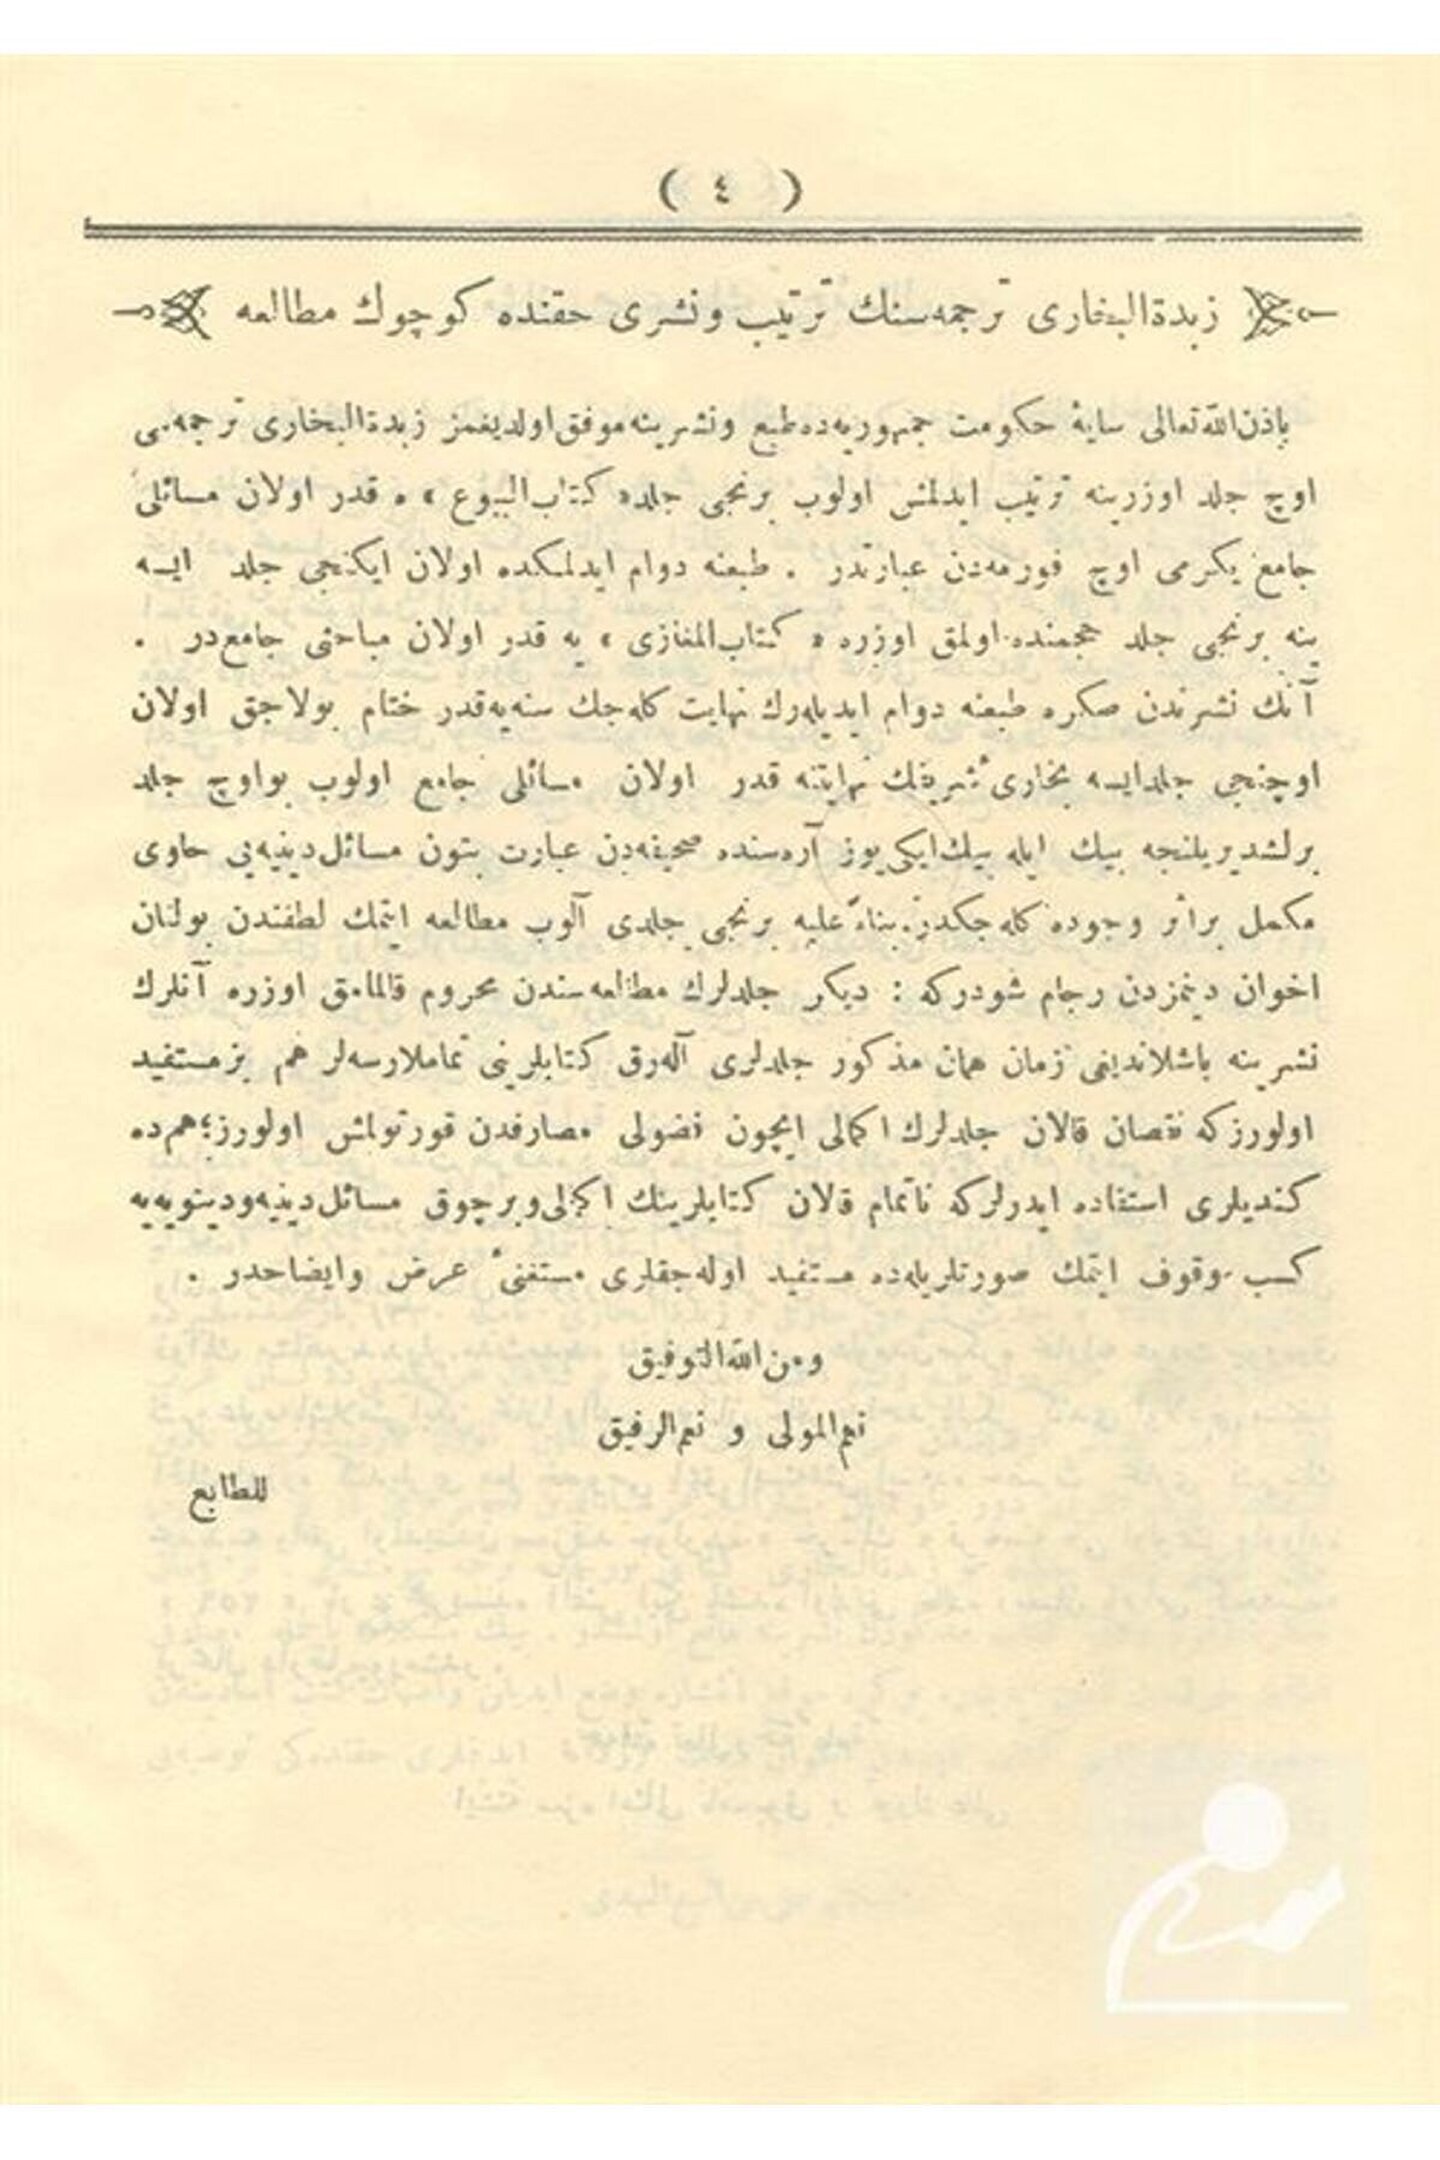 ( ٤ )
زبدةالبخاری ترجمه‌سنك ترتیب ونشری حقنده كوچوك مطالعه
باذن‌الله‌تعالی سایۀ حكومت جمهوریه‌ده‌طبع ونشرینه‌موفق‌اولدیغمز زبدةالبخاری ترجمه‌سی
اوچ جلد اوزرینه ترتیب ایدلمش اولوب برنجی جلد« كتاب‌البیوع » ه قدر اولان مسائلی
جامع یكرمی اوچ فورمه‌دن عبارتدر . طبعنه دوام ایدلمكده اولان ایكنجی جلد ایسه
ینه برنجی جلد حجمنده اولمق اوزره « كتاب‌المغازی » یه قدر اولان مباحثی جامع‌در .
آنك نشرندن صكره طبعنه دوام ایدیله‌رك نهایت كله‌جك سنه‌یه‌قدر ختام بولاجق اولان
اوچنجی جلدایسه بخاریٔ شریفك نهایتنه قدر اولان مسائلی جامع اولوب بواوچ جلد
برلشدیریلنجه بیك ایله بیك‌ایكی‌یوز آره‌سنده صحیفه‌دن عبارت بتون مسائل‌دینیه‌یی حاوی
مكمل براثر وجوده كله‌جكدر. بناءً علیه برنجی جلدی آلوب مطالعه ایتمك لطفندن بولنان
اخوان دینمزدن رجام شودركه : دیكر جلدلرك مطالعه‌سندن محروم قالمامق اوزره آنلرك
نشرینه باشلاندیغی زمان همان مذكور جلدلری آله‌رق كتابلرینی تماملارسه‌لر هم بزمستفید
اولورزكه نقصان قالان جلدلرك اكمالی ایچون فضولی مصارفدن قورتولمش اولورز؛هم‌ده
كندیلری استفاده ایدرلركه ناتمام قالان كتابلرینك اكمالی‌وبرچوق مسائل‌دینیه‌ودینویه‌یه
كسب وقوف ایتمك صورتلریله‌ده مستفید اوله‌جقلری مستغنیٔ عرض وایضاحدر .
ومن‌الله‌التوفیق
نعم‌المولی و نعم‌الرفیق
للطابع